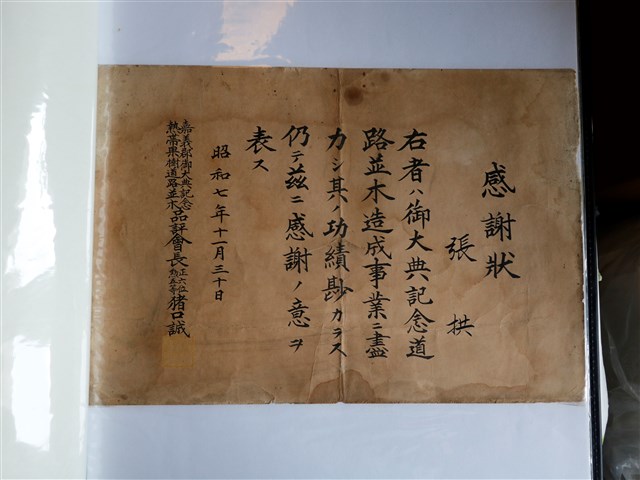 感謝狀
張拱
右者ハ御大典記念道
路並木造成事業ニ盡
力シ其ノ功績尠カラス
仍テ茲ニ感謝ノ意ヲ
表ス
昭和七年十一月三十日
嘉義郡御大典記念
熱帶果樹道路並木
品評會長
正六位
勲五等
猪口誠